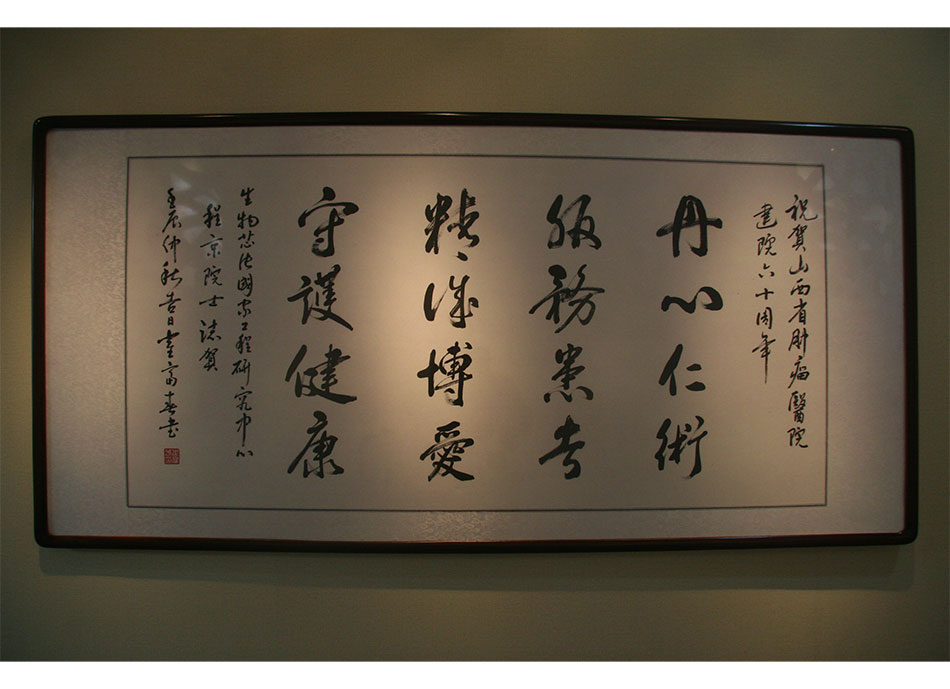 祝賀山西省肿瘤醫院
建院六十周年
丹心仁術
服務患者
精誠博愛
守護健康
生物芯片國家工程研究中心
程京院士 誌賀
壬辰仲秋吉日 富春书